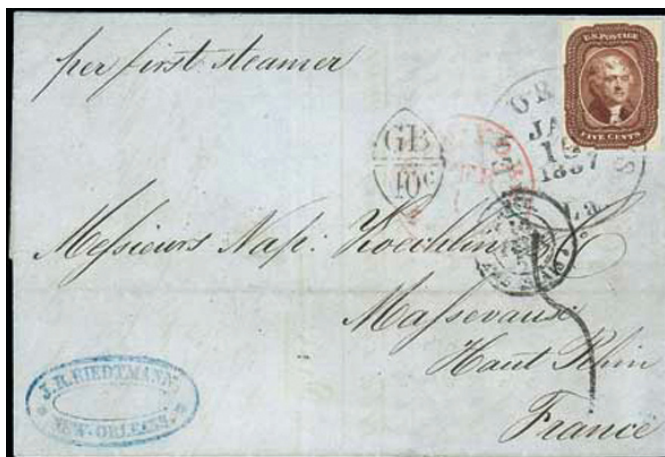 per first steamer
U.S. POSTAGE
FIVE CENTS
GB
40c
JA
1857
La.
Messieurs Nap: Koechlin
Massevaux
Haut Rhin
France
J. R. RIEDTMANN
NEW-ORLEANS.